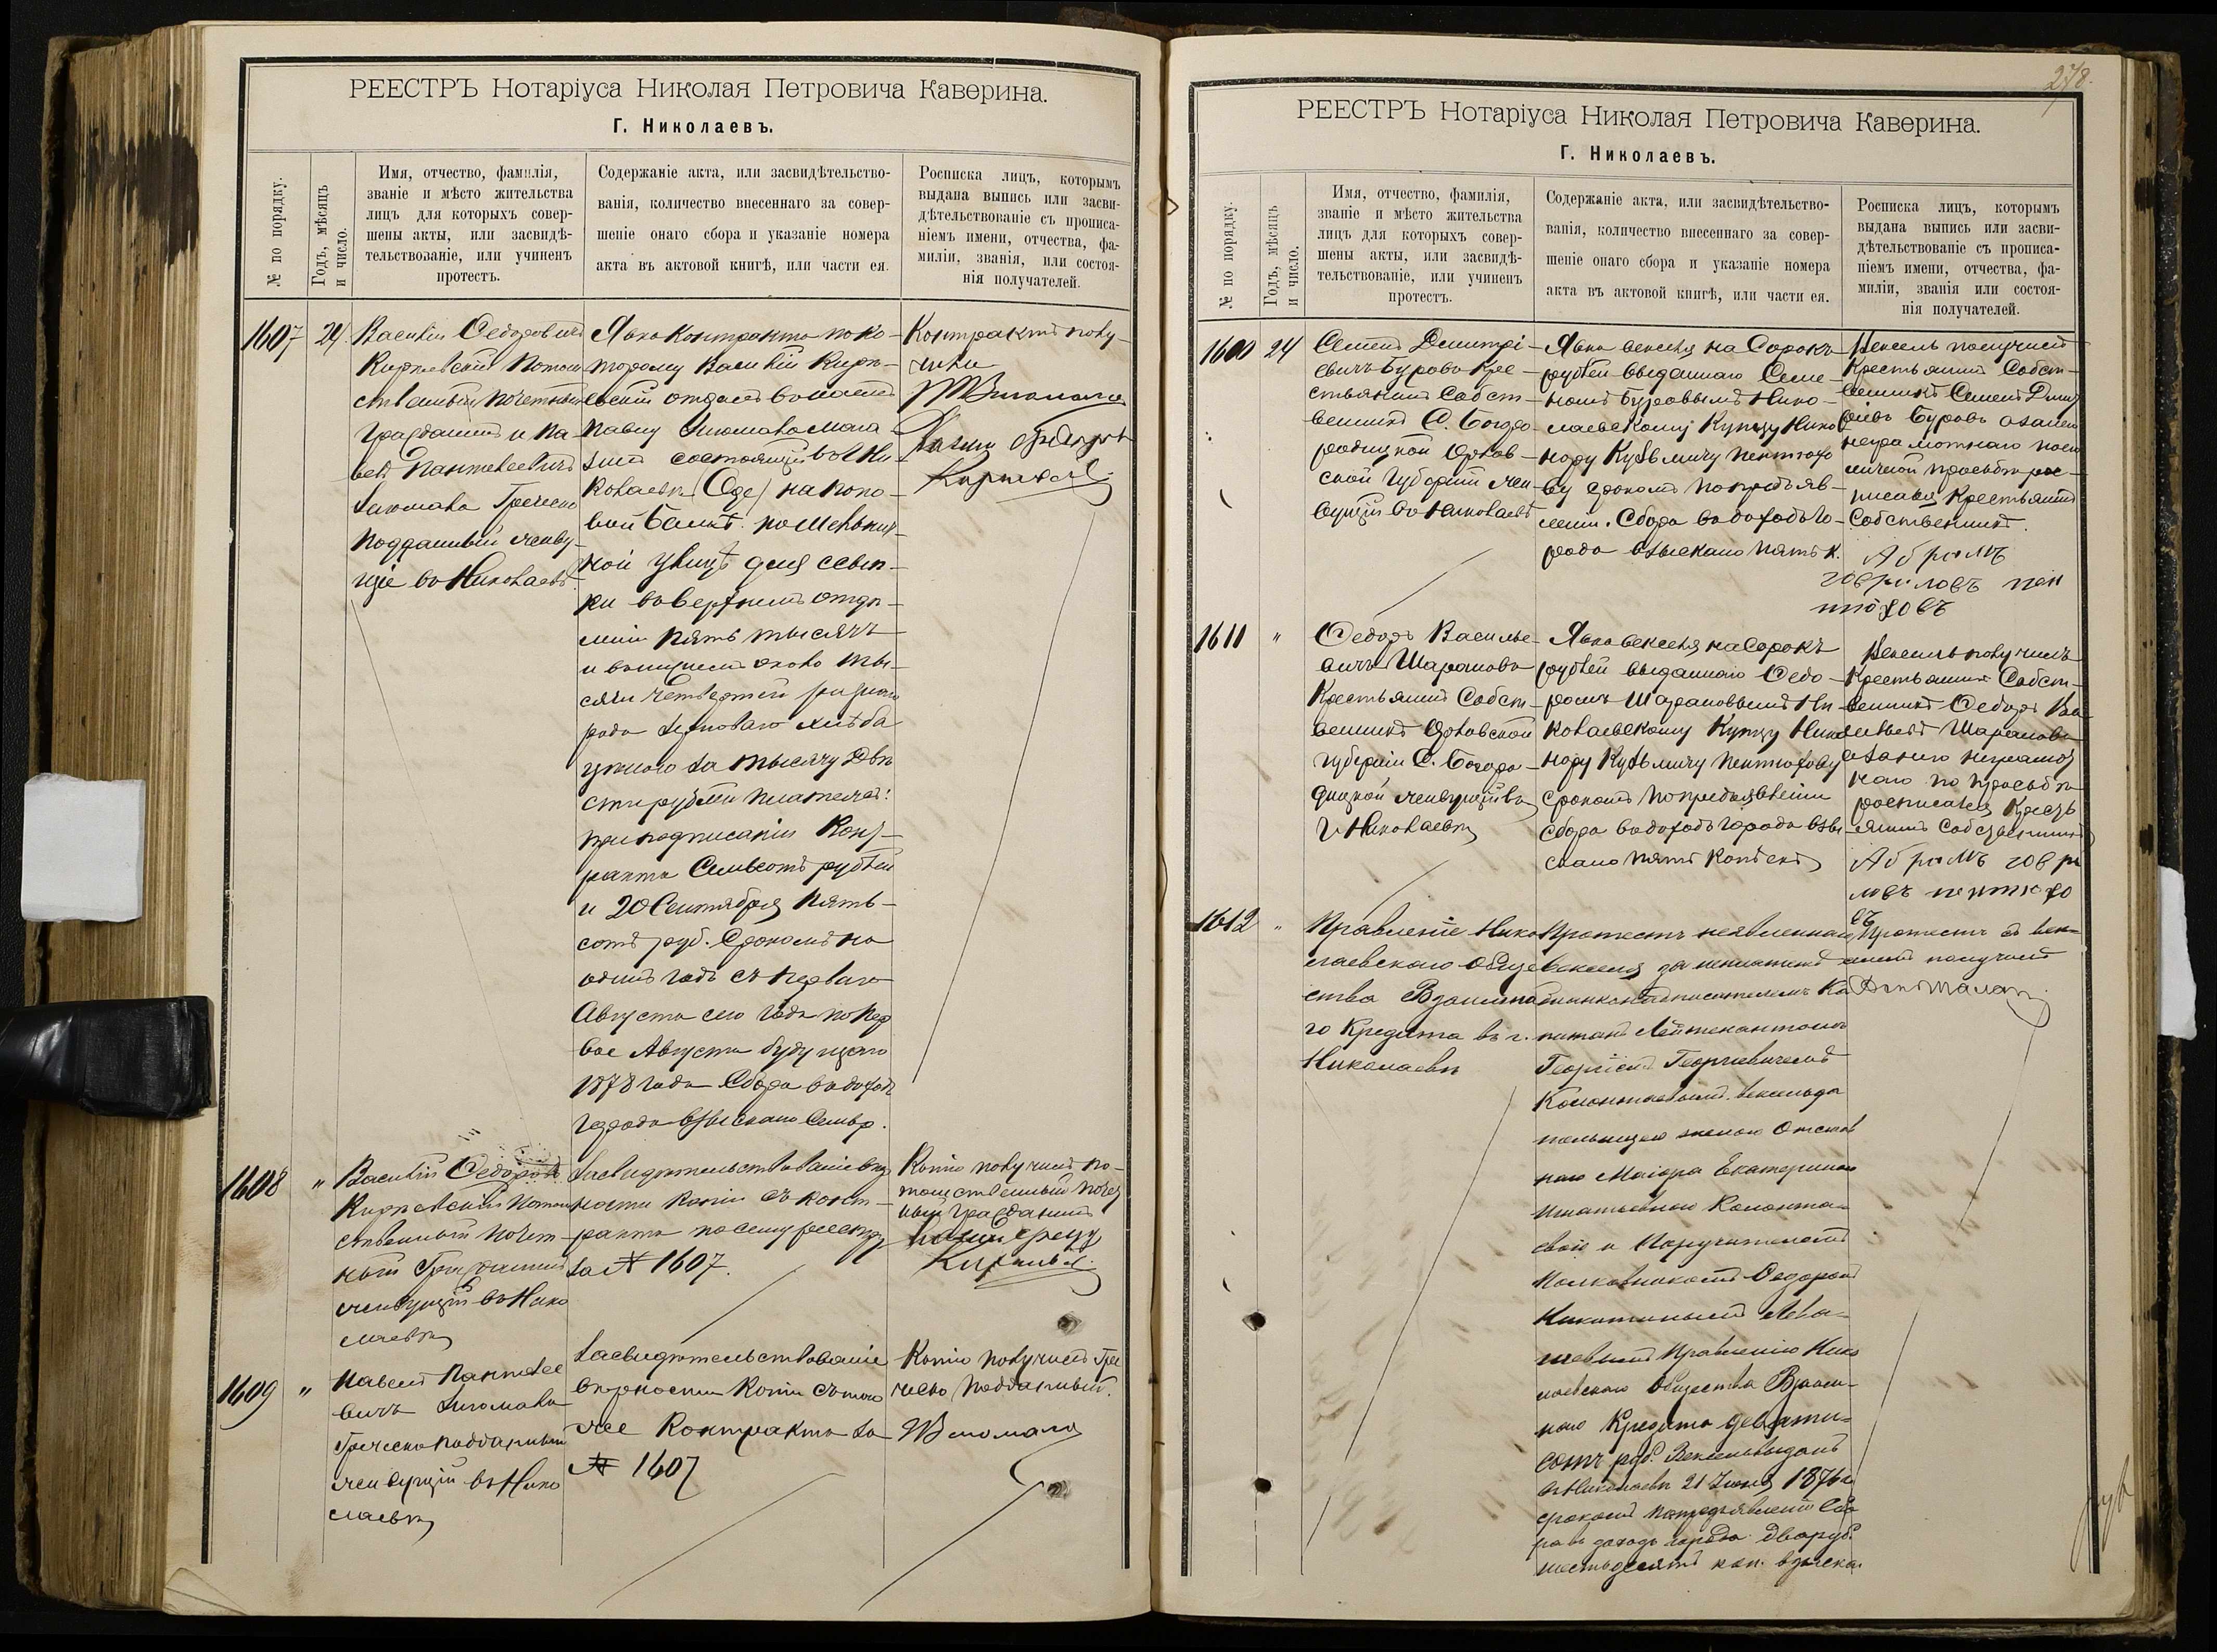 РЕЕСТРЪ Нотаріуса Николая Петровича Каверина.
Г. Николаевъ.
№ по порядку.
Годъ, мѣсяцъ
и число.
Имя, отчество, фамилія,
званіе и мѣсто жительства
лицъ для которыхъ совер-
шены акты, или засвидѣ-
тельствованіе, или учиненъ
протестъ.
Содержаніе акта, или засвидѣтельство-
ванія, количество внесеннаго за совер-
шеніе онаго сбора и указаніе номера
акта въ актовой книгѣ, или части ея.
Росписка лицъ, которымъ
выдана выпись или засви-
дѣтельствованіе съ прописа-
ніемъ имени, отчества, фа-
миліи, званія, или состоя-
нія получателей.
1607
24
Василій Федоровичъ
Потом
ственный почетный
Гражданинъ и Па-
велъ Пантелеевичъ
Греческо
подданный живу-
щіе въ Николаевѣ
Явка контракта по ко-
торому Василій
отдалъ въ наемъ
Павлу мага-
зинъ состоящій въ г. Ни-
колаевѣ (Оде) на
вой Балкѣ по
ной улицѣ для ссып-
ки въ верхнемъ отдѣ-
леніи пять тысячъ
и въ нижнемъ около ты-
сячи четвертей разнаго
рода зерноваго хлѣба
цѣною за тысячу двѣ
сти рублей платежа:
при подписаніи конт-
ракта семьсотъ рублей
и 20 Сентября пять-
сотъ руб. Срокомъ на
одинъ годъ съ перваго
Августа сего года по пер
вое Августа будущаго
1878 года Сбора въ доходъ
города взыскано семь р.
Контрактъ полу-
чили
1608
"
Василій Федоровъ
Потом
ственный почет-
ный Гражданинъ
живущій въ Нико
лаевѣ
Засвидѣтельствованіе вѣр
ности копіи съ конт-
ракта по сему реестру
за № 1607.
Копію получилъ по-
томственный почет
ный гражданинъ
1609
"
Павелъ Пантелее
вичъ
Греческо подданный
живущій въ Нико
лаевѣ
Засвидѣтельствованіе
вѣрности копіи съ того
же контракта за
№ 1607
Копію получилъ Гре
ческо подданный.
278.
РЕЕСТРЪ Нотаріуса Николая Петровича Каверина.
Г. Николаевъ.
№ по порядку.
Годъ, мѣсяцъ
и число.
Имя, отчество, фамилія,
званіе и мѣсто жительства
лицъ для которыхъ совер-
шены акты, или засвидѣ-
тельствованіе, или учиненъ
протестъ.
Содержаніе акта, или засвидѣтельство-
ванія, количество внесеннаго за совер-
шеніе онаго сбора и указаніе номера
акта въ актовой книгѣ, или части ея.
Росписка лицъ, которымъ
выдана выпись или засви-
дѣтельствованіе съ прописа-
ніемъ имени, отчества, фа-
миліи, званія или состоя-
нія получателей.
1610
24
Семенъ Дмитрі-
евичъ Буровъ Кре-
стьянинъ Собст-
венникъ С. Богоро
родицкой Орлов-
ской Губерніи жи-
вущій въ Николаевѣ
Явка векселя на Сорокъ
рублей выданнаго Семе-
номъ Буровымъ Нико-
лаевскому Купцу Нико
нору Кузьмичу Пентюхо
ву срокомъ по предъяв-
леніи. Сбора въ доходъ го-
рода взыскано пять к.
Вексель получилъ
Крестьянинъ Собст-
венникъ Семенъ Дмит
ріевъ Буровъ а за него
неграмотнаго по
личной просьбѣ рос-
писался Крестьянинъ
Собственникъ
Абрамъ
говриловъ пен
тюховъ
1611
"
Федоръ Василье-
вичъ Шарановъ
Крестьянинъ Собст-
венникъ Орловской
губерніи С. Богоро-
дицкой живущій въ
г. Николаевѣ
Явка векселя на Сорокъ
рублей выданнаго Федо-
ромъ Шарановымъ Ни-
колаевскому Купцу Нико
нору Кузьмичу Пентюхову
срокомъ по предъявленіи
Сбора въ доходъ города взы-
скано пять копѣекъ
Вексель получилъ
Крестьянинъ Собст-
венникъ Федоръ Ва-
сильевъ Шарановъ
а за него неграмот
наго по просьбѣ
росписался Кресть
янинъ Собственникъ
Абрамъ говри
ловъ пентюхо
въ
1612
"
Правленіе Нико
лаевскаго Обще
ства Взаимна
го Кредита въ г.
Николаевѣ
Протестъ неявленнаго
векселя за неплатежъ
бланконадписателемъ Ка
питанъ Лейтенантомъ
Георгіемъ Георгіевичемъ
женою Отстав
наго Маіора Екатериною
Игнатьевною
вой и Поручителемъ
Полковникомъ Федоромъ
Никитинымъ
Правленію Нико
лаевскаго Общества Взаим-
наго Кредита девяти-
сотъ руб. Вексель выданъ
въ Николаевѣ 21 Іюня 1876 г.
срокомъ по предъявленіи Сбо
ра въ доходъ города два руб.
шестьдесятъ коп. взыска.
Протестъ съ век-
селемъ получилъ